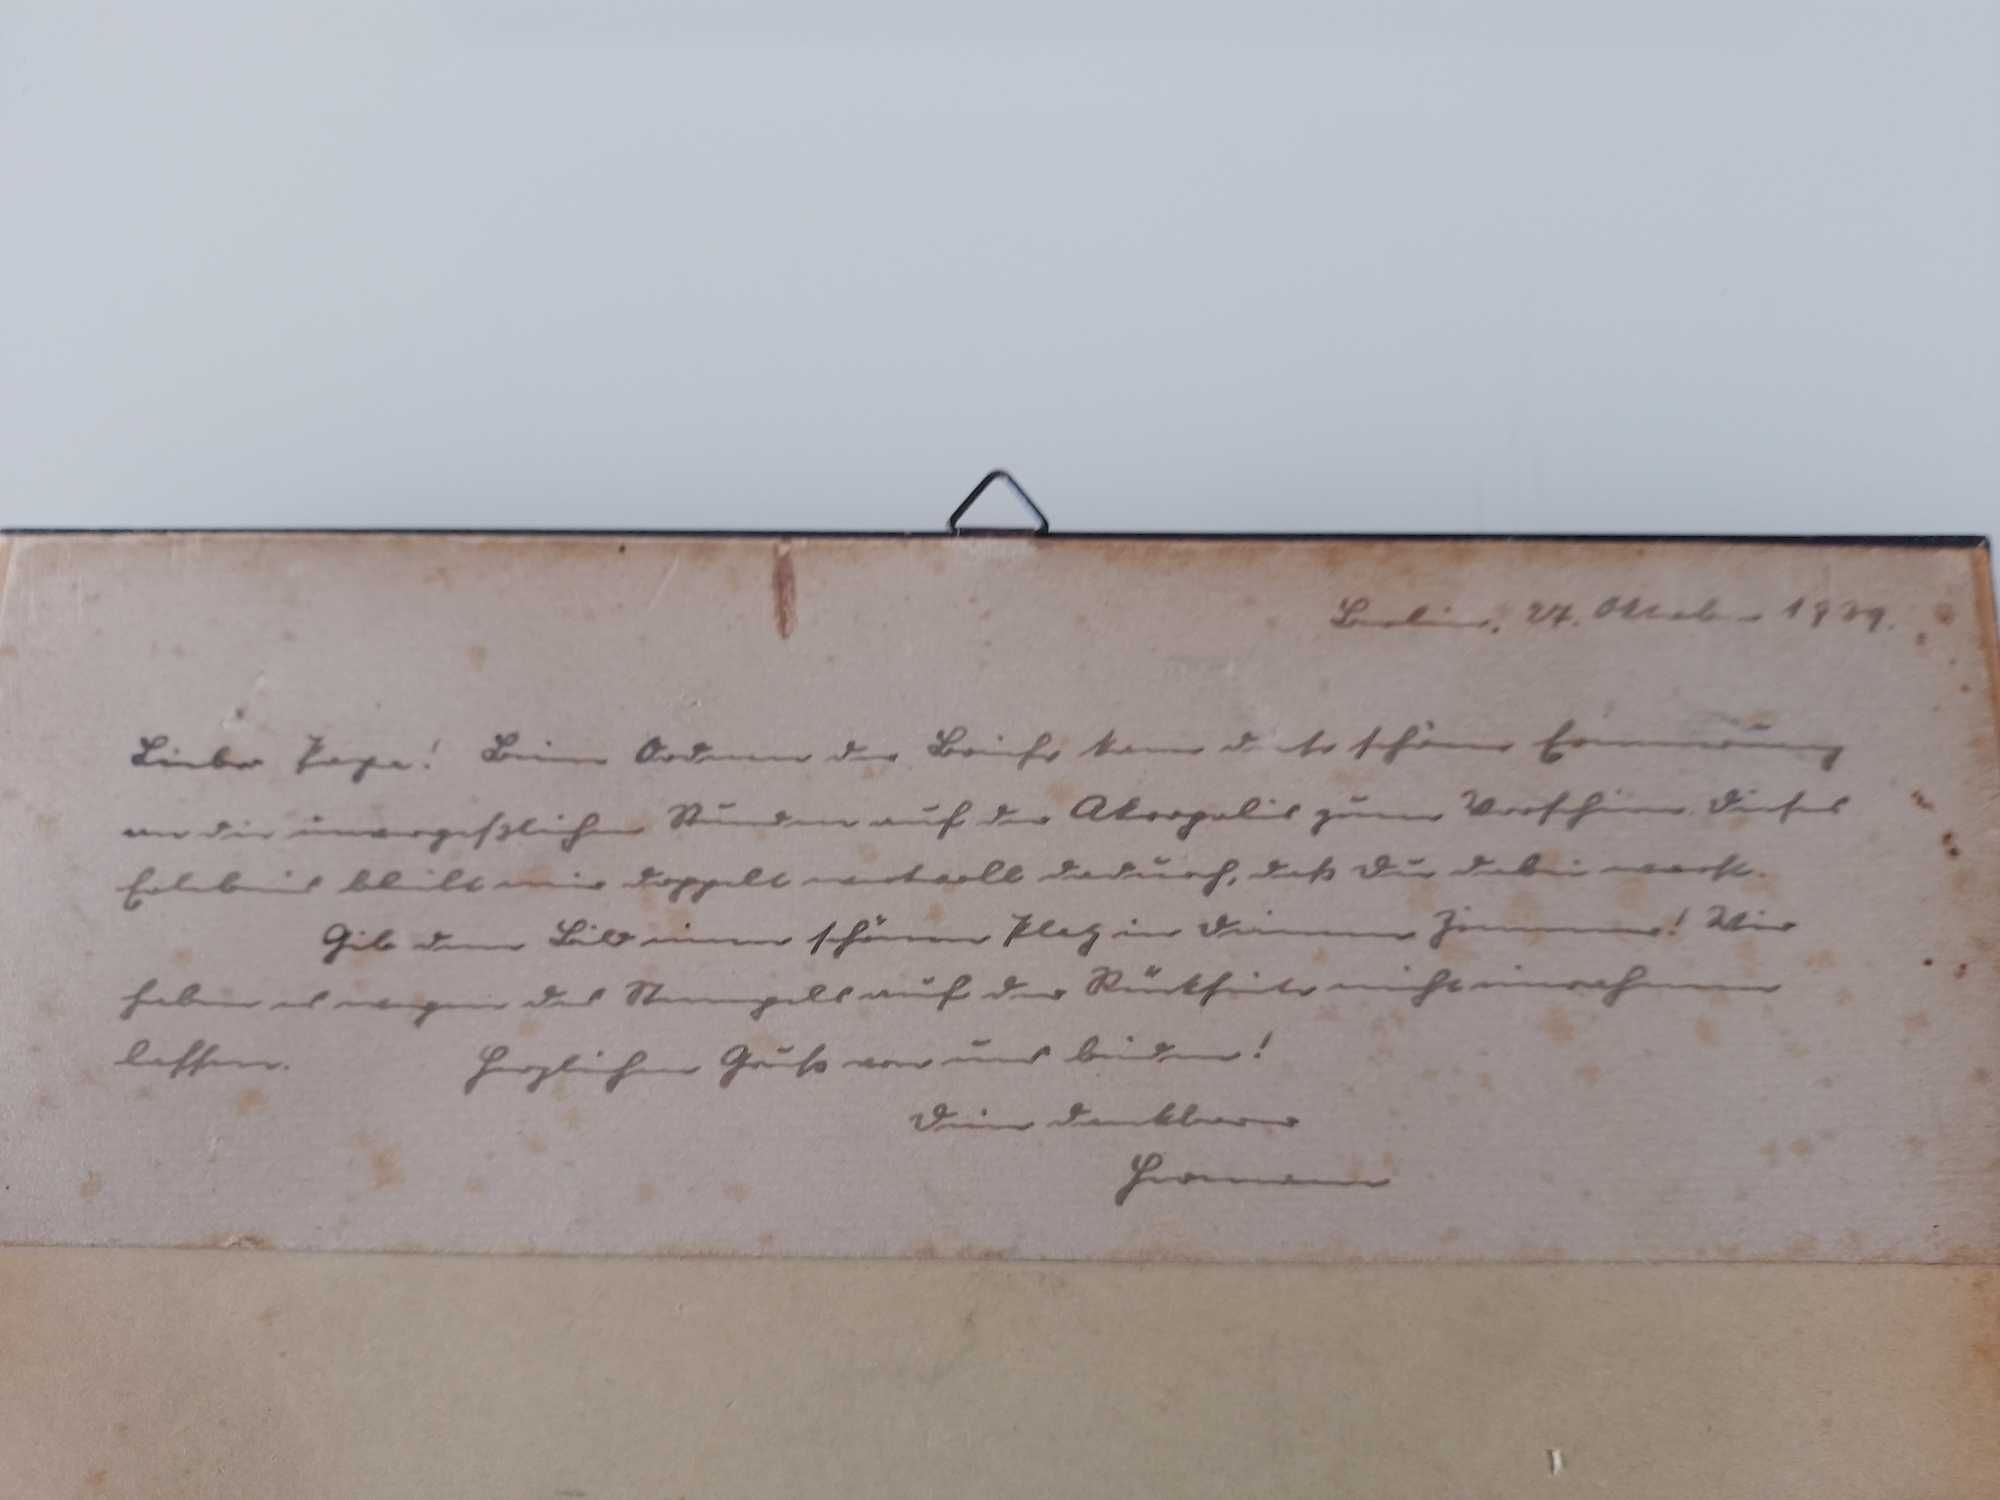 Berlin, 27. Oktober 1939.
Lieber Papa! Beim Ordnen der Briefe kam diese schöne Erinnerung
an die unvergeßlichen Stunden auf der Akropolis zum Vorschein. Dieses
Erlebnis bleibt mir doppelt wertvoll dadurch, daß Du dabei warst.
Gib dem Bild einen schönen Platz in Deinem Zimmer! Wir
haben es wegen des Stempels auf der Rückseite nicht einrahmen
lassen. Herzlichen Gruß von uns beiden!
Dein dankbarer
Hermann